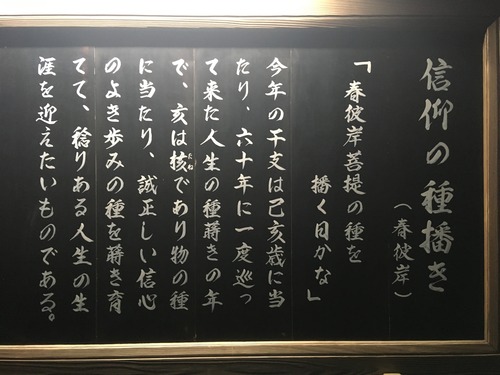 信仰の種播き
（春彼岸）
「春彼岸菩提の種を
播く日かな」
今年の干支は己亥歳に当
たり、六十年に一度巡っ
て来た人生の種蒔きの年
で、亥は核であり物の種
たね
に当たり、誠正しい信心
のよき歩みの種を蒔き育
てて、稔りある人生の生
涯を迎えたいものである。